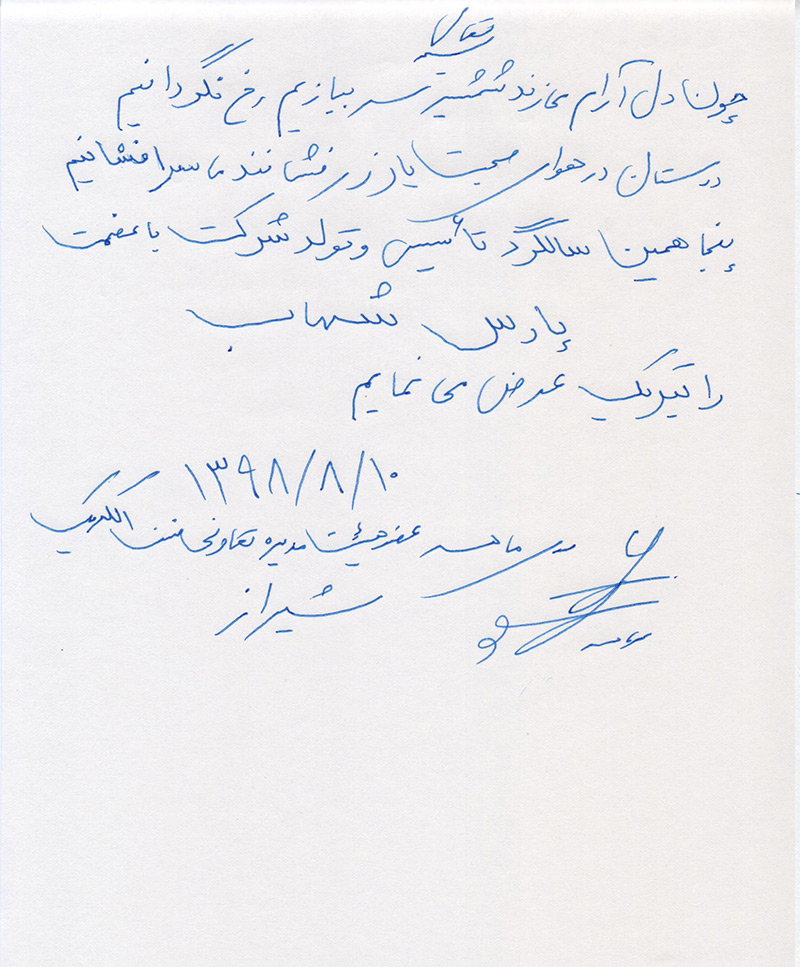 بسمه تعالی
چون دل آرام می زند شمشیر سر ببازیم رخ نگردانیم
دوستان در هوای صحبت یار زر فشانند ما سر افشانیم
پنجاهمین سالگرد تأسیس و تولد شرکت با عظمت
پارس شهاب
را تبریک عرض می نمایم
۱۳۹۸/۸/۱۰
عضو هیئت مدیره تعاونی صنف الکتریک
شیراز